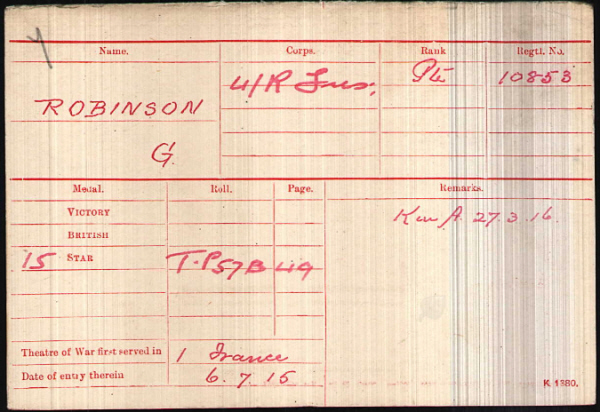 Y
Name. Corps. Rank Regtl. No.
ROBINSON 4/R Fus: Pte 10853
G.
Medal. Roll. Page. Remarks.
VICTORY K in A. 27.3.16.
BRITISH
15 STAR T.P57B 49
Theatre of War first served in 1 France
Date of entry therein 6.7.15
K 1380.